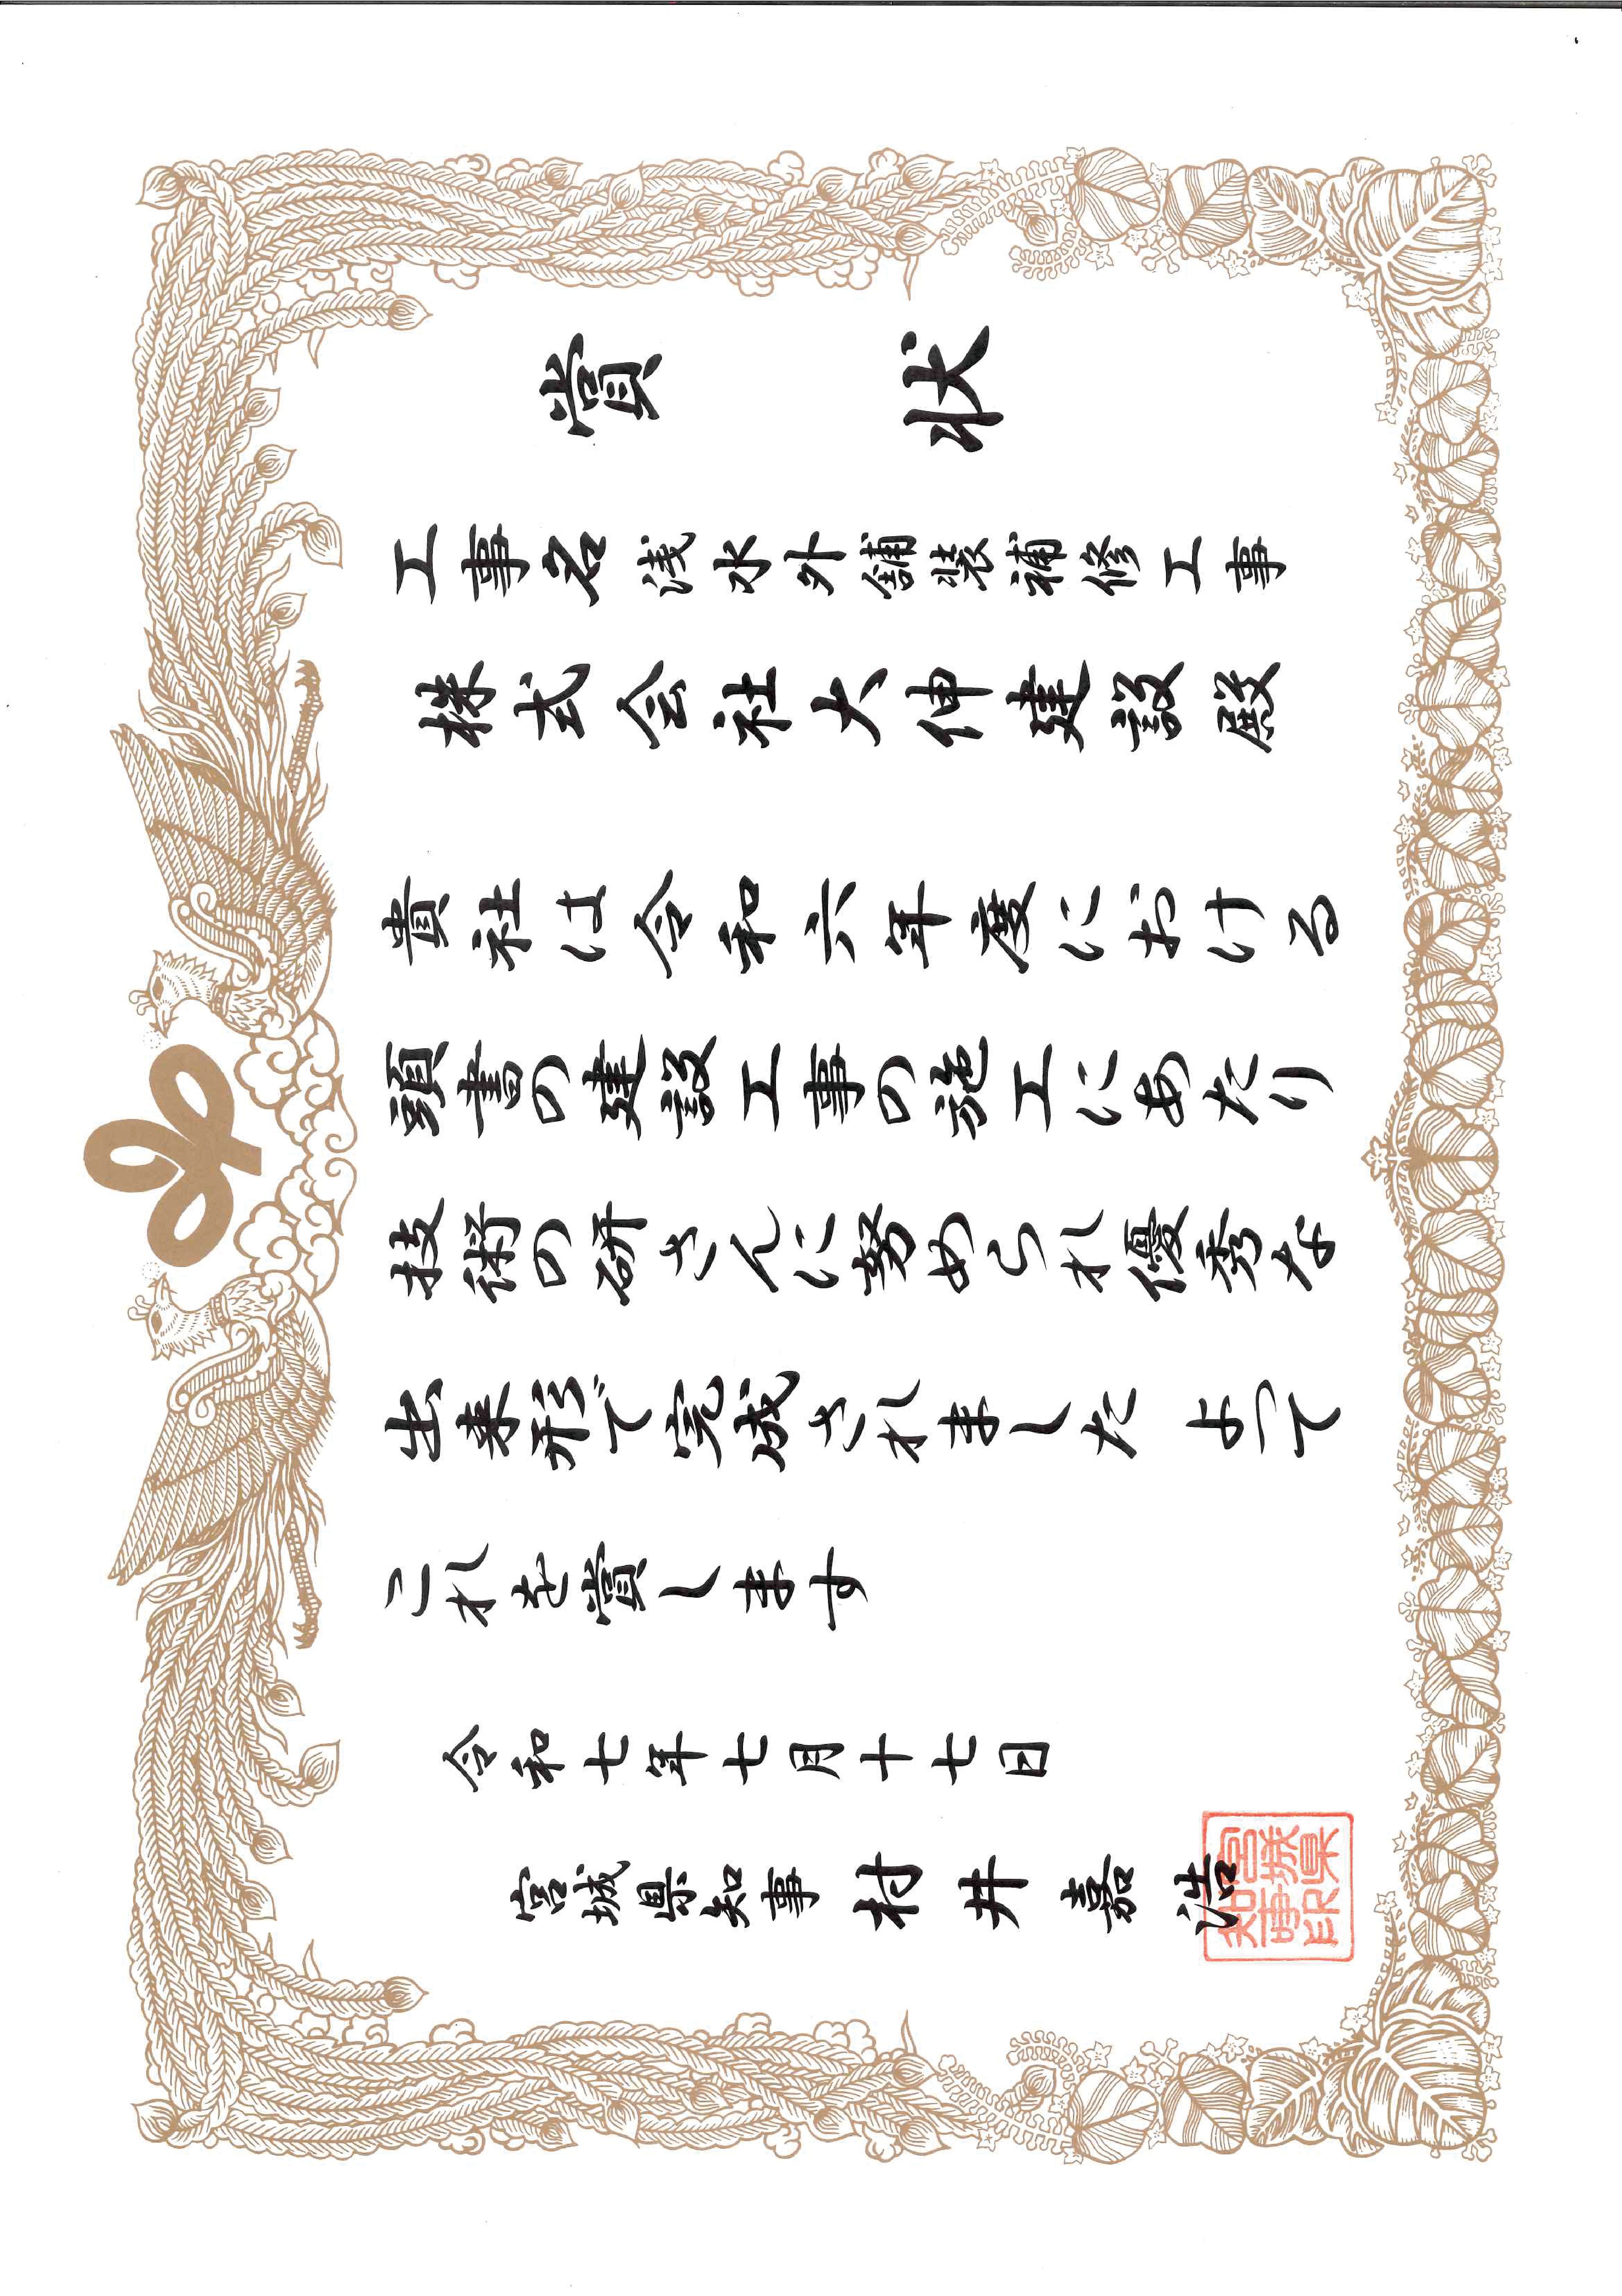 賞状
工事名 浅水外舗装補修工事
株式会社大伸建設殿
貴社は令和六年度における
頭書の建設工事の施工にあたり
技術の研さんに努められ優秀な
出来形で完成されました よって
これを賞します
令和七年七月十七日
宮城県知事 村井嘉浩
宮城県知事印